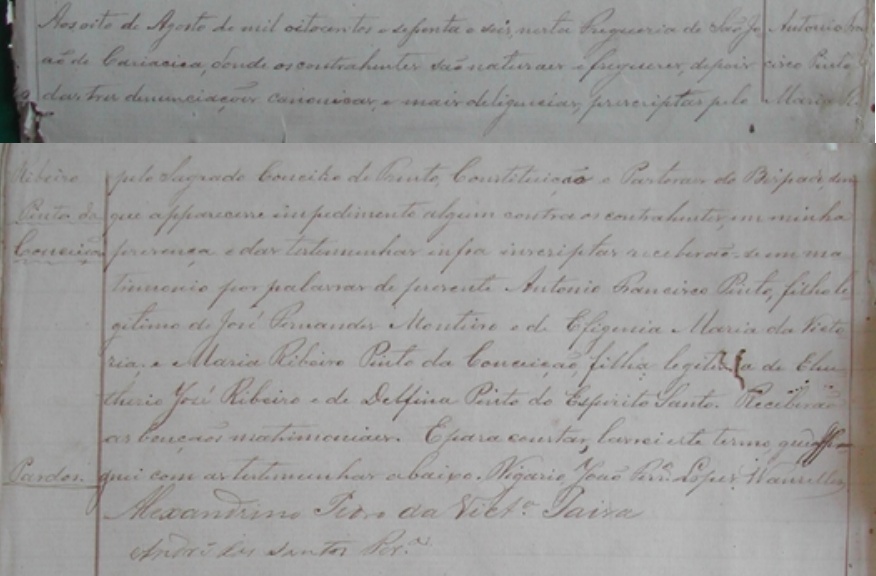 Aos oito de Agosto de mil oitocentos e septenta e seis, nesta Freguesia de São Jo
ão de Cariacica, donde os contrahentes são naturaes e freguezes, depois
das tres denunciações canonicas, e mais deligencias, prescriptas pelo
Antonio Fran
cisco Pinto
Maria
Ribeiro
Pinto da
Conceição
pelo Sagrado Concilio de Trento, Constituição e Pastoraes do Bispado, sem
que apparecesse impedimento algum contra os contrahentes, em minha
presença e das testemunhas infra inscriptas receberão-se em ma
trimonio por palavras de presente Antonio Francisco Pinto, filho le
gitimo de José Fernandes Monteiro e de Efigenia Maria da Victo
ria. e Maria Ribeiro Pinto da Conceição, filha legitima de Eleu
therio José Ribeiro e de Delfina Pinto do Espirito Santo. Receberão
as bençãos matrimoniaes. E para constar, lavrei este termo que assi
Pardos.
gnei com as testemunhas abaixo. Vigario João Lopes Wanzeller
Alexandrino Pedro da Victª Paiva
André dos Santos